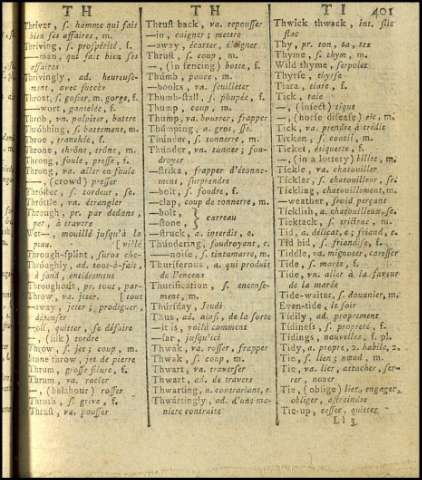 T H
T H
T I
401
Thriver, s. homme qui fait
bien ses affaires, m.
Thriving, s. prospérité, f.
—man, qui fait bien ses
affaires
Thrivingly, ad. heureuse-
ment, avec succès
Throat, s. gosier, m. gorge, f.
—wort, gantelée, f.
Throb, va. palpiter, battre
Throbbing, s. battement, m.
Throe, tranchée, f.
Throne, thrône, trône, m.
Throng, foule, presse, f.
Throng, va. aller en foule
—, (crowd) presser
Throstle, s.
Throttle, va. étrangler
Through, pr. par dedans,
par, à travers
—wet—, mouillé jusqu'à la
peau.
Through-splint, suros che-
Throughly, ad. tout-à-fait,
à fond, entièrement
Throughout, pr. tout, par-
Throw, va. jeter. [tout
—away, jeter; prodiguer,
dépenser
—off, quitter, se défaire
—, (silk) tordre
Throw, s. jet; coup, m.
Stone throw, jet de pierre
Thrum, grosse filure, f.
Thrum, va. racler
—, (belabour) rosser
Thrush, s. grive, f.
Thrust, va. pousser
Thrust back, va. repousser
—in, cogner; mettre
—away, écarter, éloigner
Thrust, s. coup, m.
—, (in fencing) botte, f.
Thumb, pouce, m.
—books, va. feuilleter
Thumb-stall, s. poupée, f.
Thump, coup, m.
Thump, va. bourrer, frapper
Thumping, a. gros, sse.
Thunder, s. tonnerre, m.
Thunder, va. tonner; fou-
droyer
—strike, frapper d'étonne-
ment, surprendre
—bolt, s. foudre, f.
—clap, coup de tonnerre, m.
—bolt,
—stone, } carreau
—struck, a. interdit, e.
Thundering, foudroyant, e.
—noise, s. tintamarre, m.
Thuriferous, a. qui produit
de l'encens
Thurification, s. encense-
ment, m.
Thursday, Jeudi
Thus, ad. ainsi, de la sorte
—it is, voilà comment
—far, jusqu'ici
Thwak, va. rosser, frapper
Thwak, s. coup, m.
Thwart, va. traverser
Thwart, ad. de travers
Thwarting, a. contrariant, e.
Thwartingly, ad. d'une ma-
niere contraire
Thwick thwack, int. flic
flac
Thy, pr. ton, ta, tes
Thyme, s. thym, m.
Wild thyme, serpolet
Thyrse, thyrse
Tiara, tiare, f.
Tick, taie
—, (insect) tique
—, (horse disease) tic, m.
Tick, va. prendre à crédit
Ticken, s. coutil, m.
Ticket, étiquette, f.
—, (in a lottery) billet, m.
Tickle, va. chatouiller
Tickler, s. chatouilleur, se.
Tickling, chatouillement, m.
—weather, froid perçant
Ticklish, a. chatouilleux, se.
Ticktack, s. trictrac, m.
Tid, a. délicat, e; friand, e.
Tid bid, s. friandise, f.
Tiddle, va. mignoter, caresser
Tide, s. marée, f.
Tide, va. aller à la faveur
de la marée
Tide-waiter, s. douanier, m.
Even-tide, le soir
Tidily, ad. proprement
Tidiness, s. propreté, f.
Tidings, nouvelles, f. pl.
Tidy, a. propre, 2. habile, 2.
Tie, s. lien; nœud, m.
Tie, va. lier, attacher, ser-
rer, nouer
Tie, (oblige) lier, engager,
obliger, astreindre
Tie-up, cesser, quitter